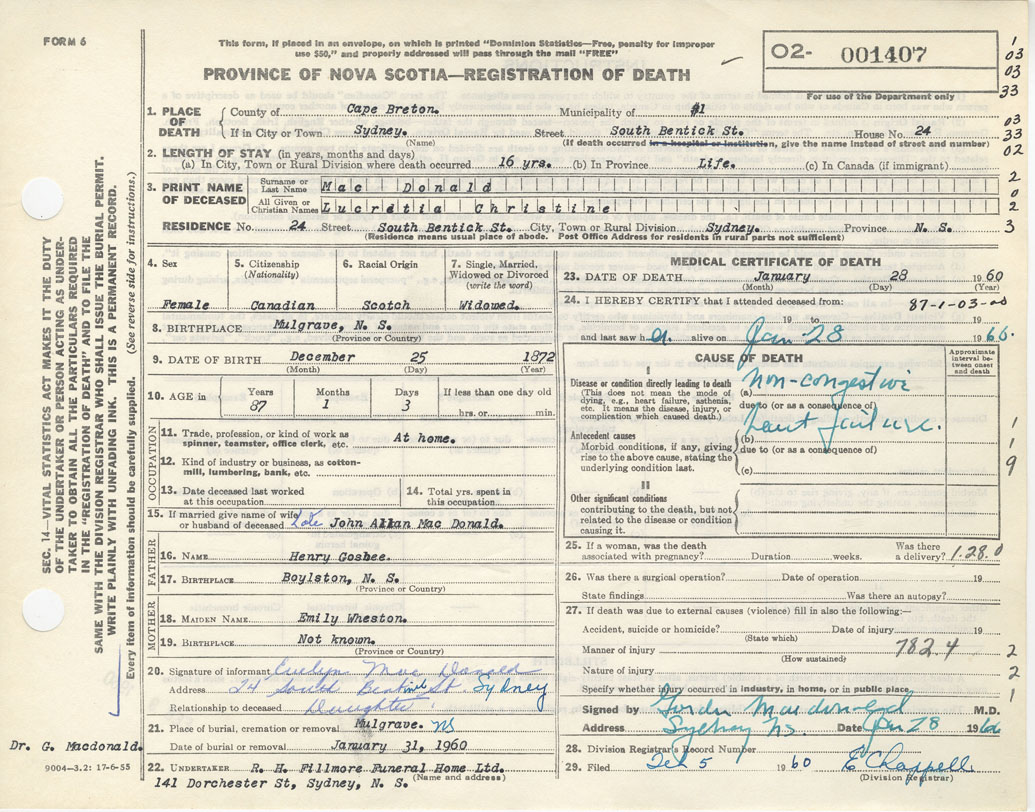 FORM 6
This form, if placed in an envelope, on which is printed "Dominion Statistics—Free, penalty for improper
use $50," and properly addressed will pass through the mail "FREE"
PROVINCE OF NOVA SCOTIA—REGISTRATION OF DEATH
02- 001407
For use of the Department only
1
03
03
33
03
33
02
2
0
2
3
1. PLACE OF DEATH
County of Cape Breton. Municipality of #1
If in City or Town Sydney. Street South Bentick St. House No. 24
(Name) (If death occurred in a hospital or institution, give the name instead of street and number)
2. LENGTH OF STAY (in years, months and days)
(a) In City, Town or Rural Division where death occurred 16 yrs. (b) In Province Life. (c) In Canada (if immigrant)
3. PRINT NAME OF DECEASED
Surname or Last Name Mac Donald
All Given or Christian Names Lucretia Christine
RESIDENCE No. 24 Street South Bentick St. City, Town or Rural Division Sydney. Province N. S.
(Residence means usual place of abode. Post Office Address for residents in rural parts not sufficient)
4. Sex
Female
5. Citizenship (Nationality)
Canadian
6. Racial Origin
Scotch
7. Single, Married, Widowed or Divorced (write the word)
Widowed.
8. BIRTHPLACE Mulgrave, N. S.
(Province or Country)
9. DATE OF BIRTH December 25 1872
(Month) (Day) (Year)
10. AGE in Years 87 Months 1 Days 3 If less than one day old
hrs. or min.
OCCUPATION
11. Trade, profession, or kind of work as
spinner, teamster, office clerk, etc. At home.
12. Kind of industry or business, as cotton-
mill, lumbering, bank, etc.
13. Date deceased last worked
at this occupation
14. Total yrs. spent in
this occupation
15. If married give name of wife
or husband of deceased Late John Allan Mac Donald.
FATHER
16. NAME Henry Gosbee.
17. BIRTHPLACE Boylston, N. S.
(Province or Country)
MOTHER
18. MAIDEN NAME Emily Wheston.
19. BIRTHPLACE Not known.
(Province or Country)
20. Signature of informant Evelyn Mac Donald
Address 24 South Bentinck St Sydney
Relationship to deceased Daughter
21. Place of burial, cremation or removal Mulgrave. NS
Date of burial or removal January 31, 1960
22. UNDERTAKER R. H. Fillmore Funeral Home Ltd.
(Name and address)
141 Dorchester St, Sydney, N. S.
MEDICAL CERTIFICATE OF DEATH
23. DATE OF DEATH January 28 1960
(Month) (Day) (Year)
24. I HEREBY CERTIFY that I attended deceased from: 87-1-03-00
19 to 19
and last saw her alive on Jan 28 1960.
CAUSE OF DEATH
Approximate interval between onset and death
I
Disease or condition directly leading to death
(This does not mean the mode of
dying, e.g., heart failure, asthenia,
etc. It means the disease, injury, or
complication which caused death.)
(a) Non-congestive
due to (or as a consequence of)
heart failure.
Antecedent causes
Morbid conditions, if any, giving
rise to the above cause, stating the
underlying condition last.
(b)
due to (or as a consequence of)
(c)
II
Other significant conditions
contributing to the death, but not
related to the disease or condition
causing it.
1
1
9
25. If a woman, was the death
associated with pregnancy? Duration weeks. Was there
a delivery? 1.28.0
26. Was there a surgical operation? Date of operation 19
State findings Was there an autopsy?
27. If death was due to external causes (violence) fill in also the following:—
Accident, suicide or homicide? Date of injury 19
(State which)
Manner of injury 782.4
(How sustained)
Nature of injury
Specify whether injury occurred in industry, in home, or in public place
2
2
1
Signed by Gordon Macdonald M.D.
Address Sydney NS. Date Jan 28 1960
28. Division Registrar's Record Number
29. Filed Feb 5 1960 E Chappell
(Division Registrar)
SEC. 14—VITAL STATISTICS ACT MAKES IT THE DUTY
OF THE UNDERTAKER OR PERSON ACTING AS UNDER-
TAKER TO OBTAIN ALL THE PARTICULARS REQUIRED
IN THE "REGISTRATION OF DEATH" AND TO FILE THE
SAME WITH THE DIVISION REGISTRAR WHO SHALL ISSUE THE BURIAL PERMIT.
WRITE PLAINLY WITH UNFADING INK. THIS IS A PERMANENT RECORD.
Every item of information should be carefully supplied. (See reverse side for instructions.)
Dr. G. Macdonald.
9004—3.2: 17-6-55